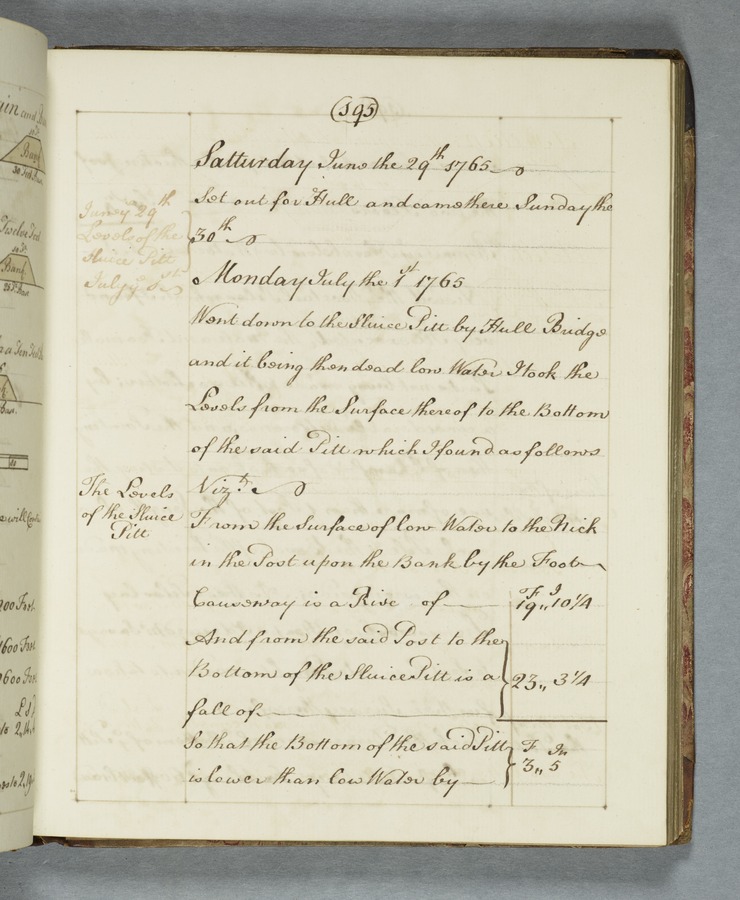 (195)
Satturday June the 29th 1765
Set out for Hull and came there Sunday the
30th
June ye 29th
Levels of the
Sluice Pitt
July ye 1st
Monday July the 1st 1765
Went down to the Sluice Pitt by Hull Bridge
and it being then dead low Water I took the
Levels from the Surface thereof to the Bottom
of the said Pitt which I found as follows
Vizt.
The Levels
of the Sluice
Pitt
From the Surface of low Water to the Nick
in the Post upon the Bank by the Foot
Causeway is a Rise of
F I
19,, 10 1/4
And from the said Post to the
Bottom of the Sluice Pitt is a
fall of
23,, 3 1/4
So that the Bottom of the said Pitt
is lower than low Water by
F In
3,, 5
Bank
Twelve Feet
Bank
1600 Feet